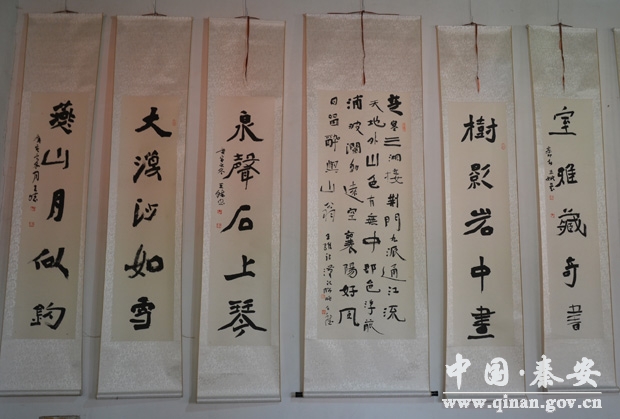 室雅藏奇書
樹影岩中畫
楚塞三湘接荆門九派通江流
天地外山色有無中郡邑浮前
浦波瀾動遠空襄陽好風
日留醉與山翁
泉聲石上琴
大漠沙如雪
燕山月似鉤
中国·秦安
www.qinan.gov.cn